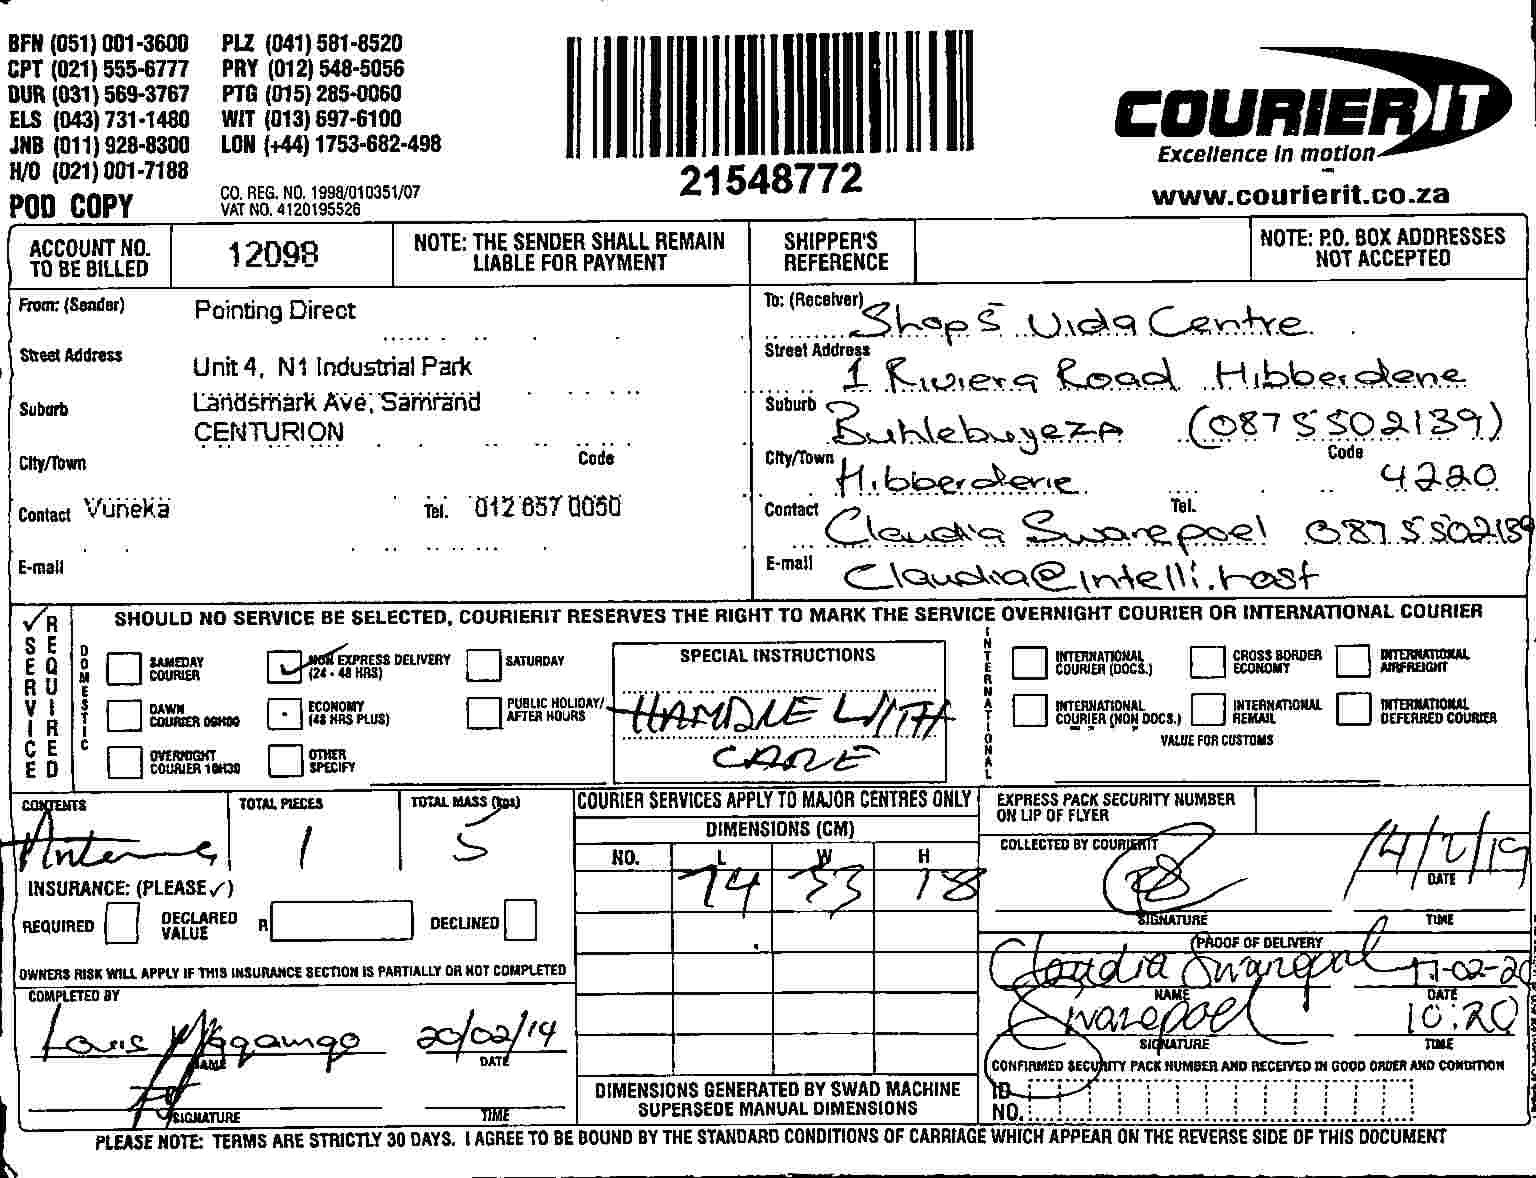 BFN (051) 001-3600 PLZ (041) 581-8520
CPT (021) 555-6777 PRY (012) 548-5056
DUR (031) 569-3767 PTG (015) 285-0060
ELS (043) 731-1480 WIT (013) 697-6100
JNB (011) 928-8300 LON (+44) 1753-682-498
H/O (021) 001-7188
POD COPY
CO. REG. NO. 1998/010351/07
VAT NO. 4120195526
21548772
COURIERIT
Excellence in motion
www.courierit.co.za
ACCOUNT NO. TO BE BILLED
12098
NOTE: THE SENDER SHALL REMAIN LIABLE FOR PAYMENT
SHIPPER'S REFERENCE
NOTE: P.O. BOX ADDRESSES NOT ACCEPTED
From: (Sender) Pointing Direct
Street Address Unit 4, N1 Industrial Park
Suburb Landsmark Ave, Samrand
CENTURION
City/Town Code
Contact Vuneka Tel. 012 657 0050
E-mail
To: (Receiver) Shop 5 Vida Centre
Street Address 1 Riviera Road Hibberdene
Suburb Buhlebuyeza (0875502139)
City/Town Hibberdene Code 4220
Contact Claudia Swarepoel Tel. 0875502139
E-mail Claudia@intelli.host
SERVICE REQUIRED
SHOULD NO SERVICE BE SELECTED, COURIERIT RESERVES THE RIGHT TO MARK THE SERVICE OVERNIGHT COURIER OR INTERNATIONAL COURIER
DOMESTIC
SAMEDAY COURIER
NON EXPRESS DELIVERY (24 - 48 HRS)
SATURDAY
DAWN COURIER 09H00
ECONOMY (48 HRS PLUS)
PUBLIC HOLIDAY/ AFTER HOURS
OVERNIGHT COURIER 10H30
OTHER SPECIFY
SPECIAL INSTRUCTIONS
HANDLE WITH
CARE
INTERNATIONAL
INTERNATIONAL COURIER (DOCS.)
CROSS BORDER ECONOMY
INTERNATIONAL AIRFREIGHT
INTERNATIONAL COURIER (NON DOCS.)
INTERNATIONAL REMAIL
INTERNATIONAL DEFERRED COURIER
VALUE FOR CUSTOMS
CONTENTS
Antenna
TOTAL PIECES
1
TOTAL MASS (kgs)
5
INSURANCE: (PLEASE ✓)
REQUIRED DECLARED VALUE R DECLINED
OWNERS RISK WILL APPLY IF THIS INSURANCE SECTION IS PARTIALLY OR NOT COMPLETED
COMPLETED BY
20/02/19
NAME DATE
SIGNATURE TIME
COURIER SERVICES APPLY TO MAJOR CENTRES ONLY
DIMENSIONS (CM)
NO. L W H
74 33 18
DIMENSIONS GENERATED BY SWAD MACHINE SUPERSEDE MANUAL DIMENSIONS
EXPRESS PACK SECURITY NUMBER ON LIP OF FLYER
COLLECTED BY COURIERIT
14/2/19
DATE
SIGNATURE TIME
PROOF OF DELIVERY
Claudia Swarepoel
NAME DATE
Swarepoel 10:20
SIGNATURE TIME
CONFIRMED SECURITY PACK NUMBER AND RECEIVED IN GOOD ORDER AND CONDITION
ID NO.
PLEASE NOTE: TERMS ARE STRICTLY 30 DAYS. I AGREE TO BE BOUND BY THE STANDARD CONDITIONS OF CARRIAGE WHICH APPEAR ON THE REVERSE SIDE OF THIS DOCUMENT